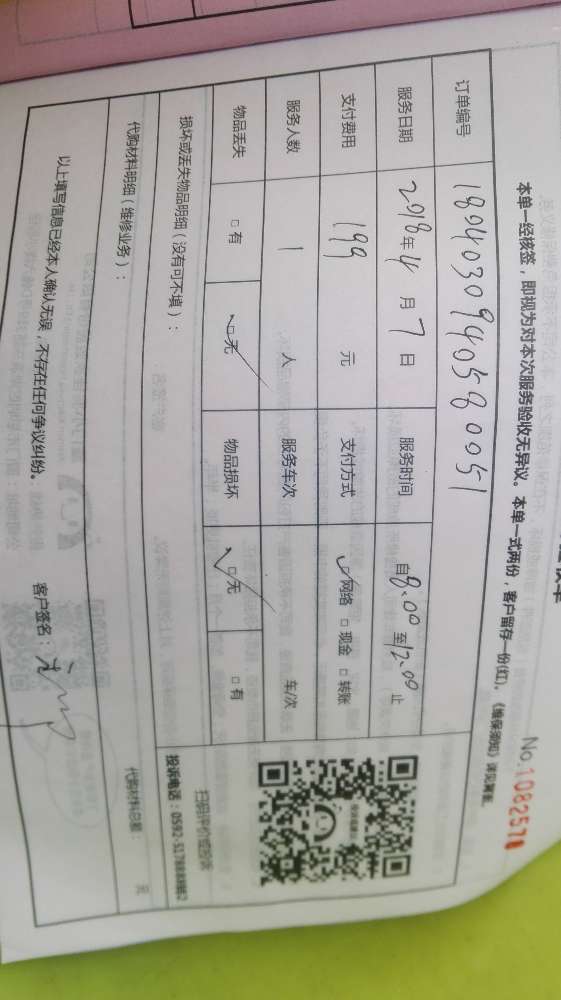 No.1082578
本单一经核签，即视为对本次服务验收无异议。本单一式两份，客户留存一份(红)，《维保须知》详见背面。
订单编号 1804030940580051
服务日期 2018年4月7日 服务时间 自8:00至12:00止
支付费用 199 元 支付方式 ☑网络 □现金 □转账
服务人数 1 人 服务车次 车/次
物品丢失 □有 ☑无 物品损坏 ☑无 □有
损坏或丢失物品明细（没有可不填）：
扫码评价或投诉
代购材料明细（维修业务）：
代购材料总额： 元
以上填写信息已经本人确认无误，不存在任何争议纠纷。 客户签名：